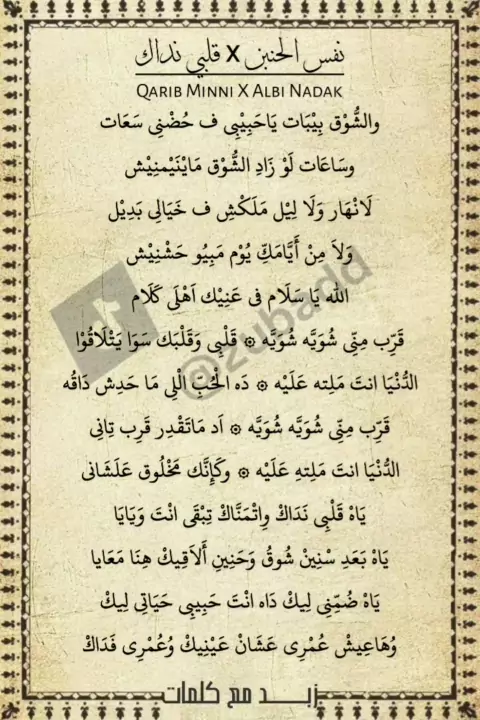 نفس الحنين X قلبي نداك
QARIB MINNI X ALBI NADAK
والشُّوْق بِيْبَات يَاحَبِيْبِى ف حُضْنِى سَعَات
وسَاعَات لَوْ زَادِ الشُّوْق مَايْنَيْمنِيْش
لَانْهَار وَلَا لِيْل مَلَكْشِ ف خَيَالِى بَدِيْل
وَلاَ مِنْ أَيَّامَكِّ يُوْم مَبِيُو حَشْنِيْش
الله يَا سَلَام فى عَنِيْك اَهْلَى كَلَام
قَرِّب مِنِّى شُوَيَّه شُوَيَّه ۞ قَلْبِى وَقَلْبَك سَوَا يَتْلَاقُوْا
الدُّنْيَا انتَ مَلِته عَلَيْه ۞ دَه الْحُبِّ الْلِى مَا حَدِش دَاقُه
قَرِّب مِنِّى شُوَيَّه شُوَيَّه ۞ اَد مَاتَقْدِر قَرِب تِانِى
الدُّنْيَا انتَ مَلِتهِ عَلَيْه ۞ وكَإِنَّك مَخْلُوق عَلَشَانى
يَاهْ قَلْبِى نَدَاكْ وِاتْمَنَّاكْ تِبْقَى انْتَ وَيَايَا
يَاهْ بَعَدِ سْنِيْنْ شُوقْ وَحَنِينِ أَلَاقِيكْ هِنَا مَعَايا
يَاهْ ضُمِّنِى لِيكْ دَاه انْتَ حَبِيبِى حَيَاتِى لِيكْ
وُهَاعِيشْ عُمْرِى عَشَانْ عَيْنِيكْ وُعُمْرِى فَدَاكْ
زبد مع كلمات
@zubadd